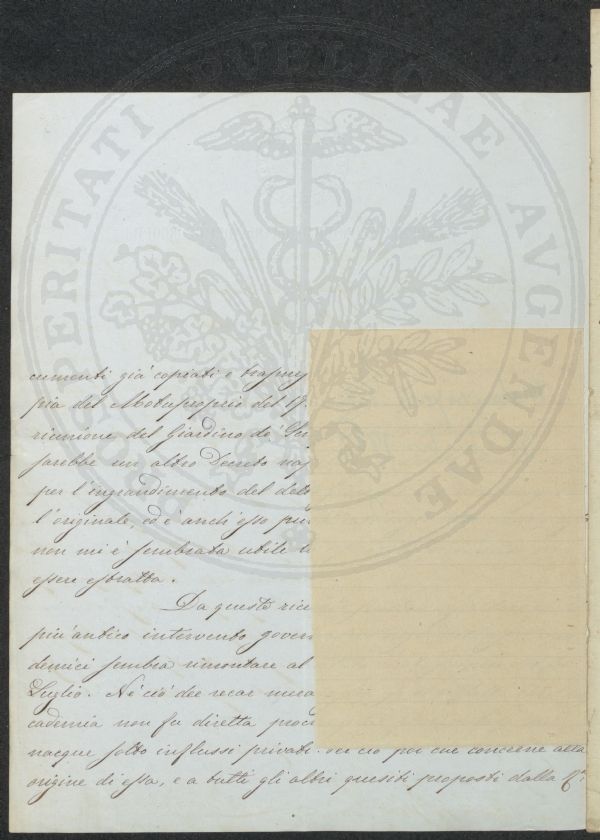 PROSPERITATI PUBLICAE AVGENDAE
cumenti già copiati e trasmes
pia del Motuproprio del 17
riunione del Giardino de' Sem
sarebbe un altro Decreto
per l'ingrandimento del dett
l'originale, ed è anch'esso
non mi è sembrata utile
essere estratta.
Da queste rice
più antico intervento govern
demici sembra rimontare al
Luglio. Nè ciò dee recar mera
cademia non fu diretta
nacque sotto influssi privati. ciò poi che concerne alla
origine di essa, e a tutti gli altri quesiti proposti dalla